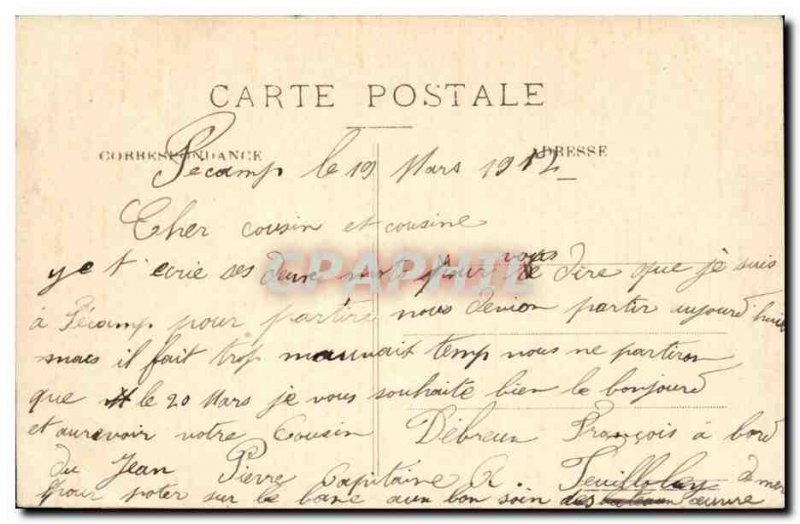 CARTE POSTALE
CORRESPONDANCE
ADRESSE
Fécamp le 19 Mars 1912
Cher cousin et cousine
CPAPHIL
ye t'ecrie ses deux mots pour vous dire que je suis
à Fécamp pour partire nous devion partir aujourd huit
mais il fait trop mauvait temp nous ne partiron
que le 20 Mars je vous souhaite bien le bonjourd
et aurevoir votre Cousin Débreux François à bord
du Jean Pierre Capitaine A.
pour poter sur le banc aux bon soin des œuvre
de mer